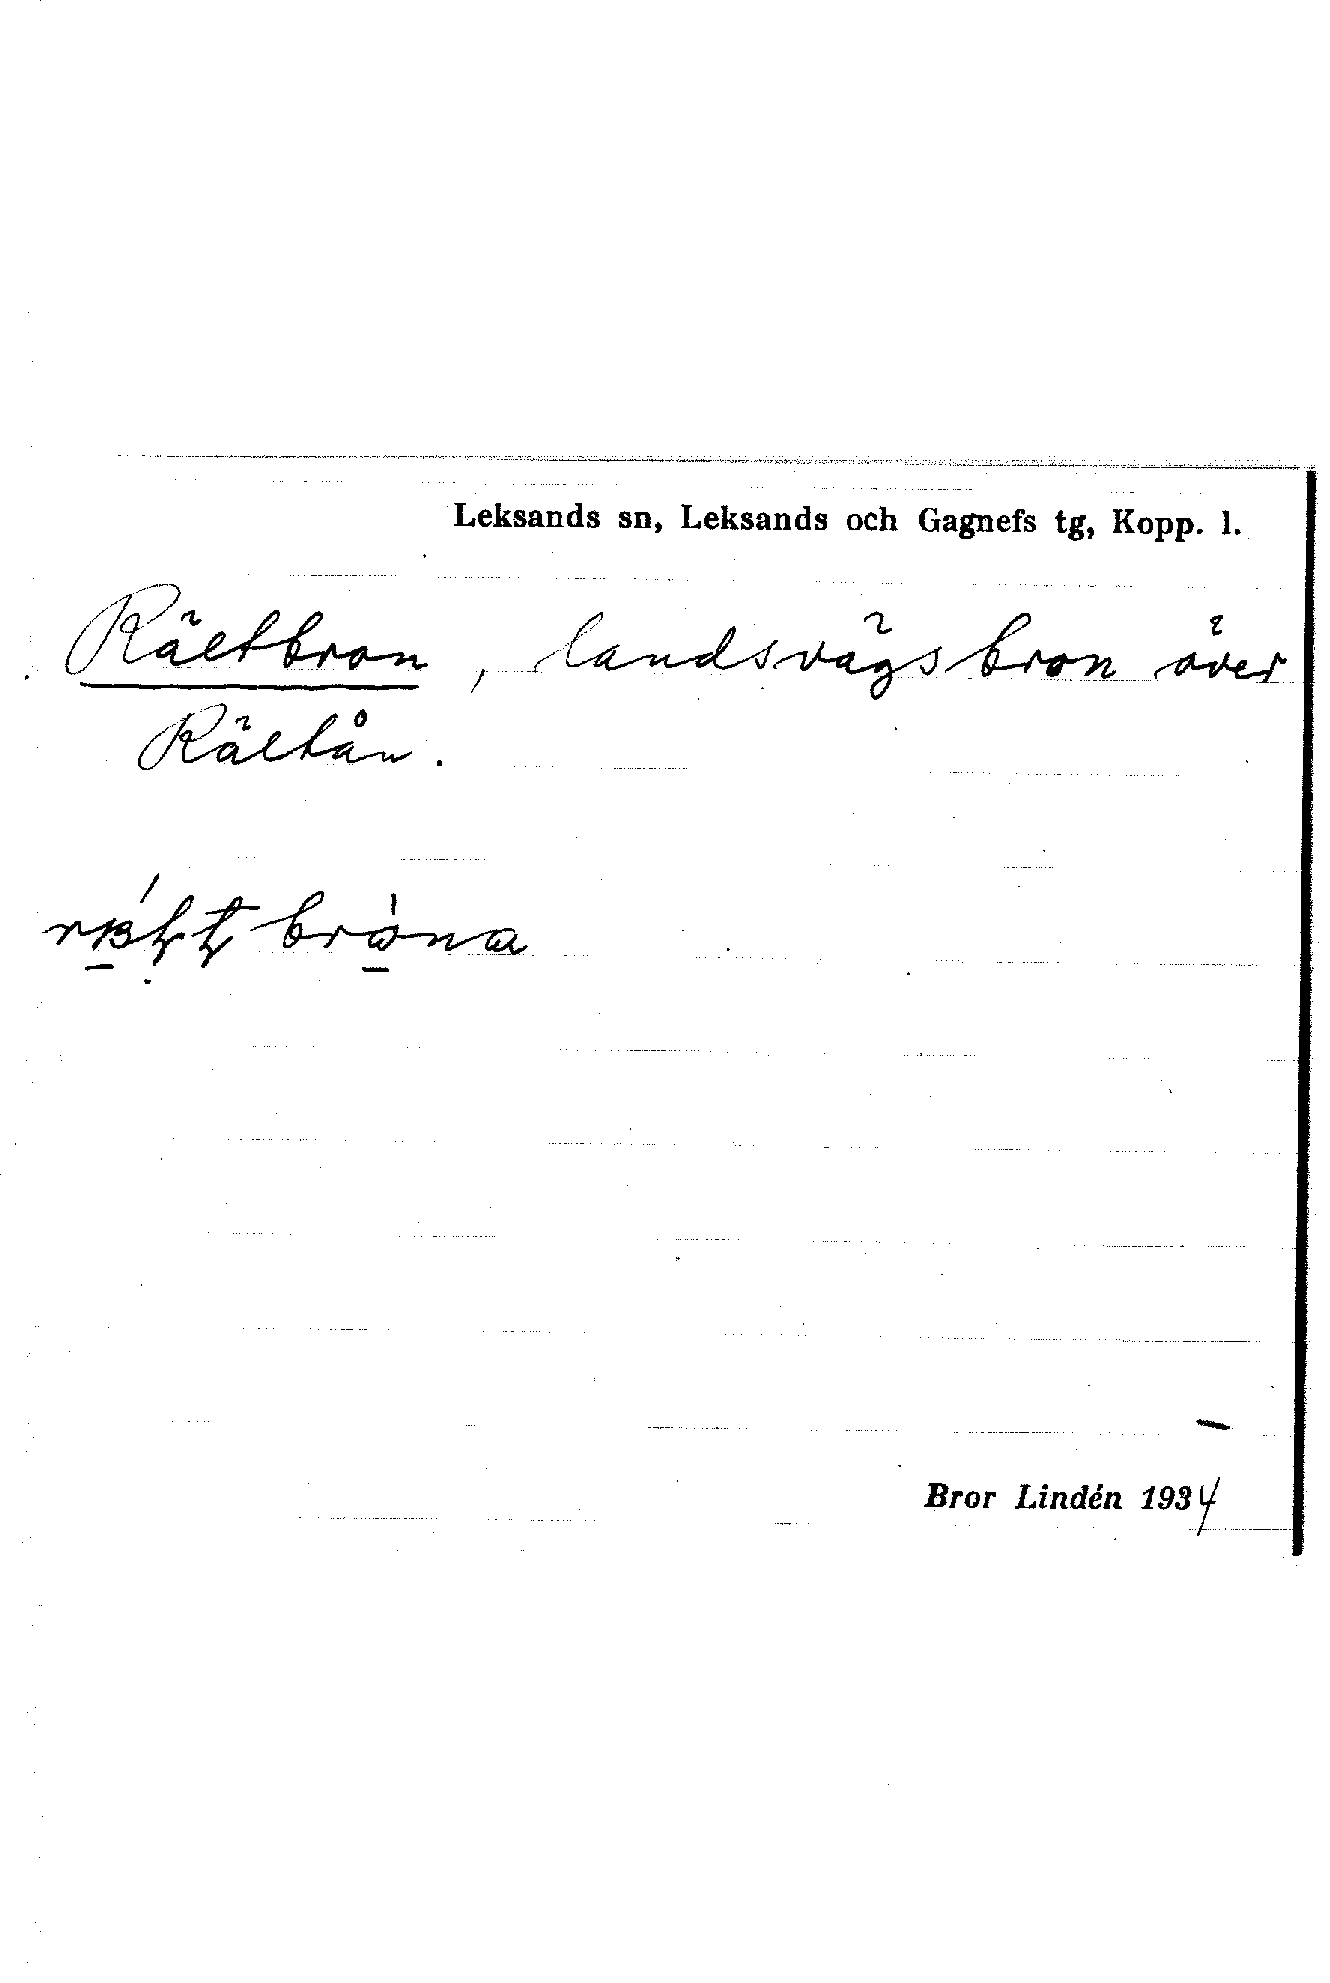 Leksands sn, Leksands och Gagnefs tg, Kopp. l.
Rältbron, landsvägsbron över
Rältån.
bròna
Bror Lindén 1934